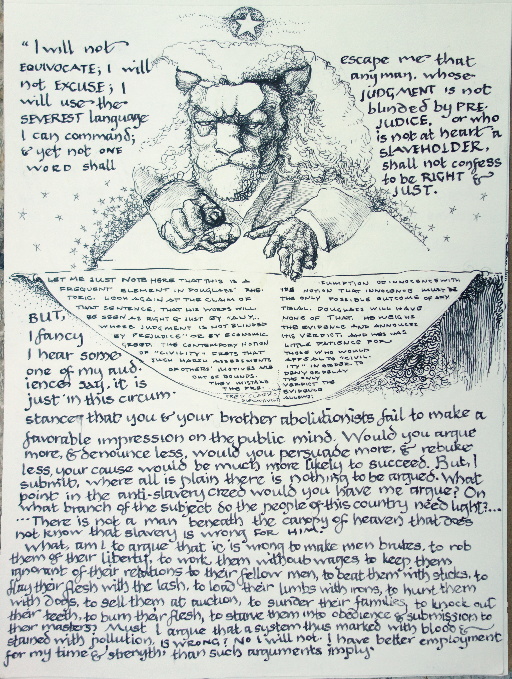 "I will not
EQUIVOCATE; I will
not EXCUSE; I
will use the
SEVEREST language
I can command;
& yet not ONE
WORD shall
escape me that
any man, whose
JUDGMENT is not
blinded by PRE-
JUDICE, or who
is not at heart a
SLAVEHOLDER,
shall not confess
to be RIGHT &
JUST.
LET ME JUST NOTE HERE THAT THIS IS A
FREQUENT ELEMENT IN DOUGLASS' RHE-
TORIC. LOOK AGAIN AT THE CLAIM OF
THAT SENTENCE, THAT HIS WORDS WILL
BE SEEN AS RIGHT & JUST BY "ANY...
WHOSE JUDGMENT IS NOT BLINDED
BY PREJUDICE" OR BY ECONOMIC
GREED. THE CONTEMPORARY NOTION
OF "CIVILITY" FRETS THAT
SUCH HARSH ASSESSMENTS
OF OTHERS' MOTIVES ARE
OUT OF BOUNDS.
THEY MISTAKE
THE PRE-
SUMPTION OF INNOCENCE WITH
THE NOTION THAT INNOCENCE MUST BE
THE ONLY POSSIBLE OUTCOME OF ANY
TRIAL. DOUGLASS WILL HAVE
NONE OF THAT. HE WEIGHS
THE EVIDENCE AND ANNOUNCES
HIS VERDICT. AND HE HAS
LITTLE PATIENCE FOR
THOSE WHO WOULD
APPEAL TO "CIVIL-
ITY" IN ORDER TO
DENY OR DELAY
THE ONLY
VERDICT THE
EVIDENCE
ALLOWS.
BUT,
I fancy
I hear some
one of my aud-
ience say, it is
just in this circum-
stance that you & your brother abolitionists fail to make a
favorable impression on the public mind. Would you argue
more, & denounce less, would you persuade more, & rebuke
less, your cause would be much more likely to succeed. But, I
submit, where all is plain there is nothing to be argued. What
point in the anti-slavery creed would you have me argue? On
what branch of the subject do the people of this country need light?...
...There is not a man beneath the canopy of heaven that does
not know that slavery is wrong FOR HIM.
What, am I to argue that it is wrong to make men brutes, to rob
them of their liberty, to work them without wages, to keep them
ignorant of their relations to their fellow men, to beat them with sticks, to
flay their flesh with the lash, to load their limbs with irons, to hunt them
with dogs, to sell them at auction, to sunder their families, to knock out
their teeth, to burn their flesh, to starve them into obedience & submission to
their masters? Must I argue that a system thus marked with blood &
stained with pollution, IS WRONG? No! I will not. I have better employment
for my time & strength than such arguments imply.